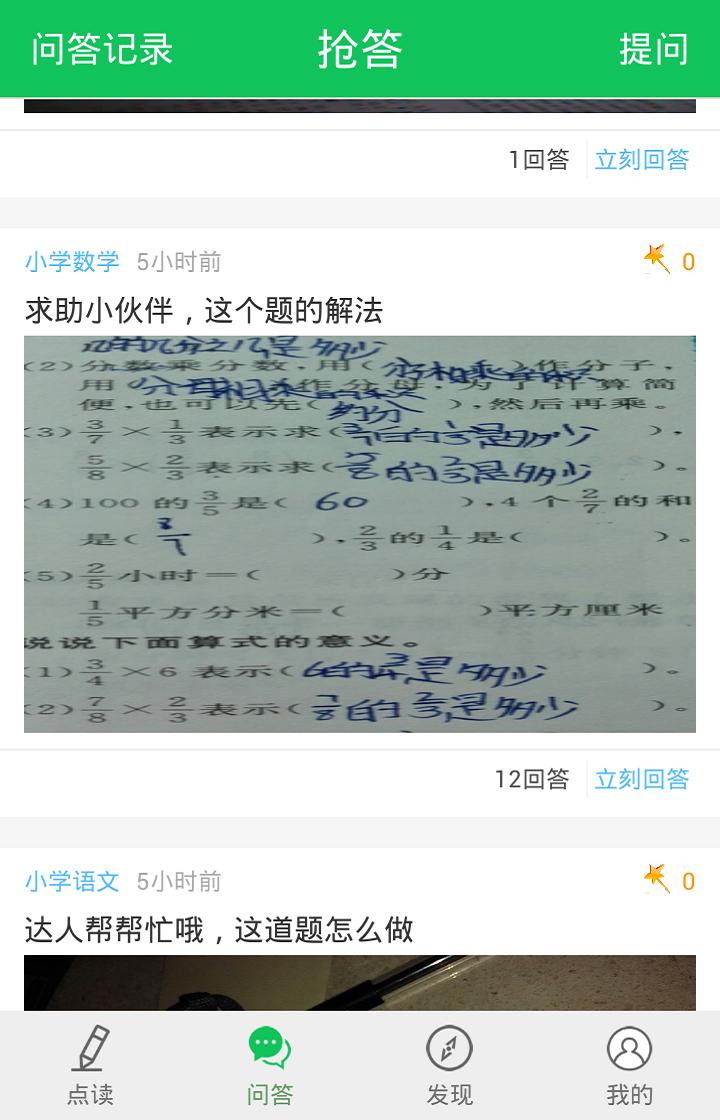 问答记录 抢答 提问
1回答 立刻回答
小学数学 5小时前 0
求助小伙伴，这个题的解法
几的几分之几是多少
(2)分数乘分数，用( 分子相乘的积 )作分子，
用( 分母相乘的积 )作分母，为了计算简
便，也可以先( 约分 )，然后再乘。
(3) 3/7 × 1/3 表示求( 3/7的1/3是多少 )，
5/8 × 2/3 表示求( 5/8的2/3是多少 )。
(4)100 的 3/5 是( 60 )，4 个 2/7 的和
是( 8/7 )，2/3 的 1/4 是( )。
(5) 2/5 小时＝( )分
1/5 平方分米＝( )平方厘米
说说下面算式的意义。
(1) 3/4 × 6 表示( 6的3/4是多少 )。
(2) 7/8 × 2/3 表示( 7/8的2/3是多少 )。
12回答 立刻回答
小学语文 5小时前 0
达人帮帮忙哦，这道题怎么做
点读 问答 发现 我的